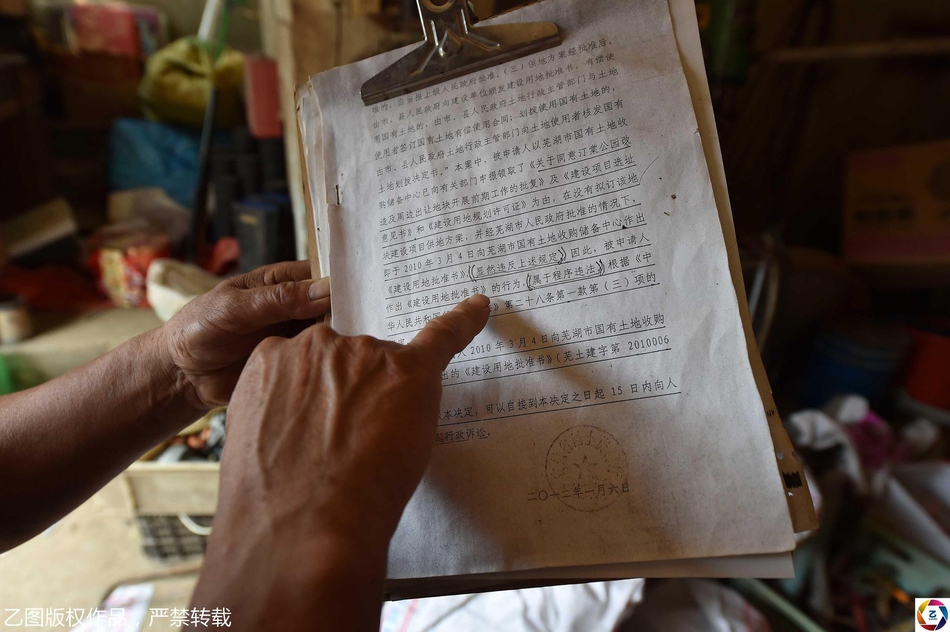 准的，应当报上级人民政府批准。（三）供地方案经批准后，
由市、县人民政府向建设单位颁发建设用地批准书。有偿使
用国有土地的，由市、县人民政府土地行政主管部门与土地
使用者签订国有土地有偿使用合同；划拨使用国有土地的，
由市、县人民政府土地行政主管部门向土地使用者核发国有
土地划拨决定书。”本案中，被申请人以芜湖市国有土地收
购储备中心已向有关部门申报领取了《关于同意汀棠公园改
造及周边出让地块开展前期工作的批复》及《建设项目选址
意见书》和《建设用地规划许可证》为由，在没有拟订该地
块建设项目供地方案，并经芜湖市人民政府批准的情况下，
即于2010年3月4日向芜湖市国有土地收购储备中心作出
《建设用地批准书》，显然违反上述规定。因此，被申请人
作出《建设用地批准书》的行为，属于程序违法。根据《中
华人民共和国 》第二十八条第一款第（三）项的
人2010年3月4日向芜湖市国有土地收购
出的《建设用地批准书》（芜土建字第2010006
本决定，可以自接到本决定之日起15日内向人
起行政诉讼。
二〇一二年一月六日
乙图版权作品，严禁转载
乙